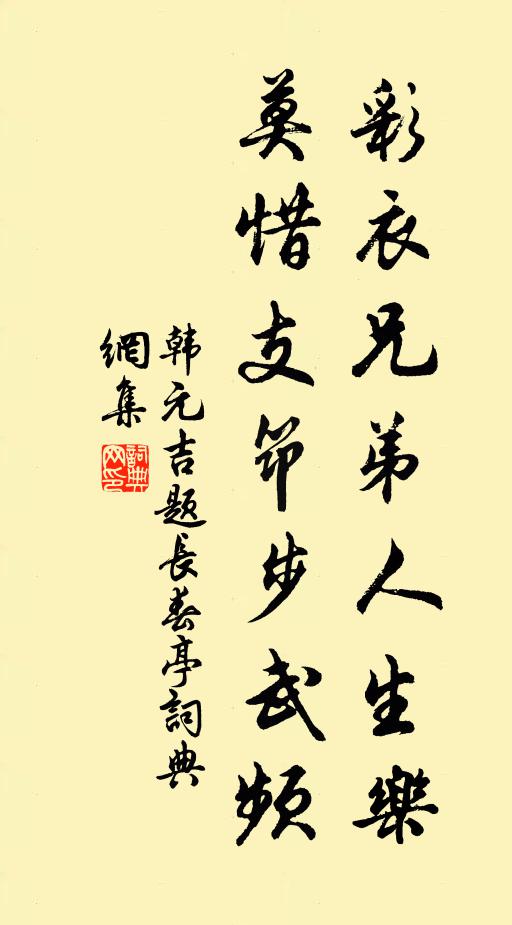 彩衣兄弟人生樂
莫惜支筇步武頻
韩元吉題長春亭詞典
網集
詞典
网印